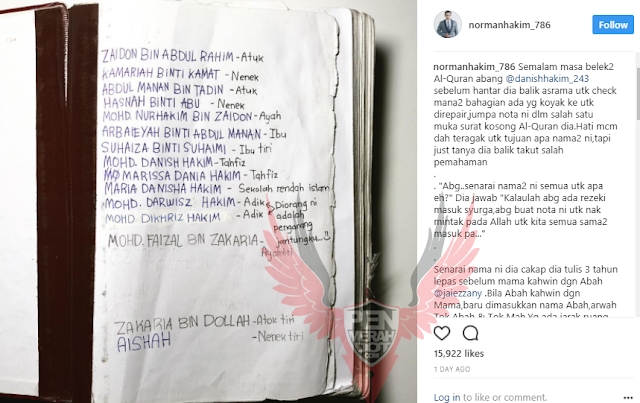 ZAIDON BIN ABDUL RAHIM - Atuk
KAMARIAH BINTI KAMAT - Nenek
ABDUL MANAN BIN TADIN - Atuk
HASNAH BINTI ABU - Nenek
MOHD. NURHAKIM BIN ZAIDON - Ayah
ARBAIEYAH BINTI ABDUL MANAN - Ibu
SUHAIZA BINTI SUHAIMI - Ibu tiri
MOHD. DANISH HAKIM - Tahfiz
MARISSA DANIA HAKIM - Tahfiz
MARIA DANISHA HAKIM - Sekolah rendah islam
MOHD. DARWISZ HAKIM - Adik
MOHD DIKHRIZ HAKIM - Adik
Diorang ni
adalah
pengarang
jantungku...:)
MOHD. FAIZAL BIN ZAKARIA -
ZAKARIA BIN DOLLAH - Atok tiri
AISHAH - Nenek tiri
PEN
MERAH
DOT
COM
normanhakim_786
Follow
normanhakim_786 Semalam masa belek2
Al-Quran abang @danishhakim_243
sebelum hantar dia balik asrama utk check
mana2 bahagian ada yg koyak ke utk
direpair,jumpa nota ni dlm salah satu
muka surat kosong Al-Quran dia.Hati mcm
dah teragak utk tujuan apa nama2 ni,tapi
just tanya dia balik takut salah
pemahaman
.
. "Abg..senarai nama2 ni semua utk apa
eh?" Dia jawab "Kalaulah abg ada rezeki
masuk syurga,abg buat nota ni utk nak
mintak pada Allah utk kita semua sama2
masuk pa..."
.
.
Senarai nama ni dia cakap dia tulis 3 tahun
lepas sebelum mama kahwin dgn Abah
@jaiezzany .Bila Abah kahwin dgn
Mama,baru dimasukkan nama Abah,arwah
Tok Abah & Tok Mah.Yg ada jarak ruang
15,922 likes
1 DAY AGO
Log in to like or comment.